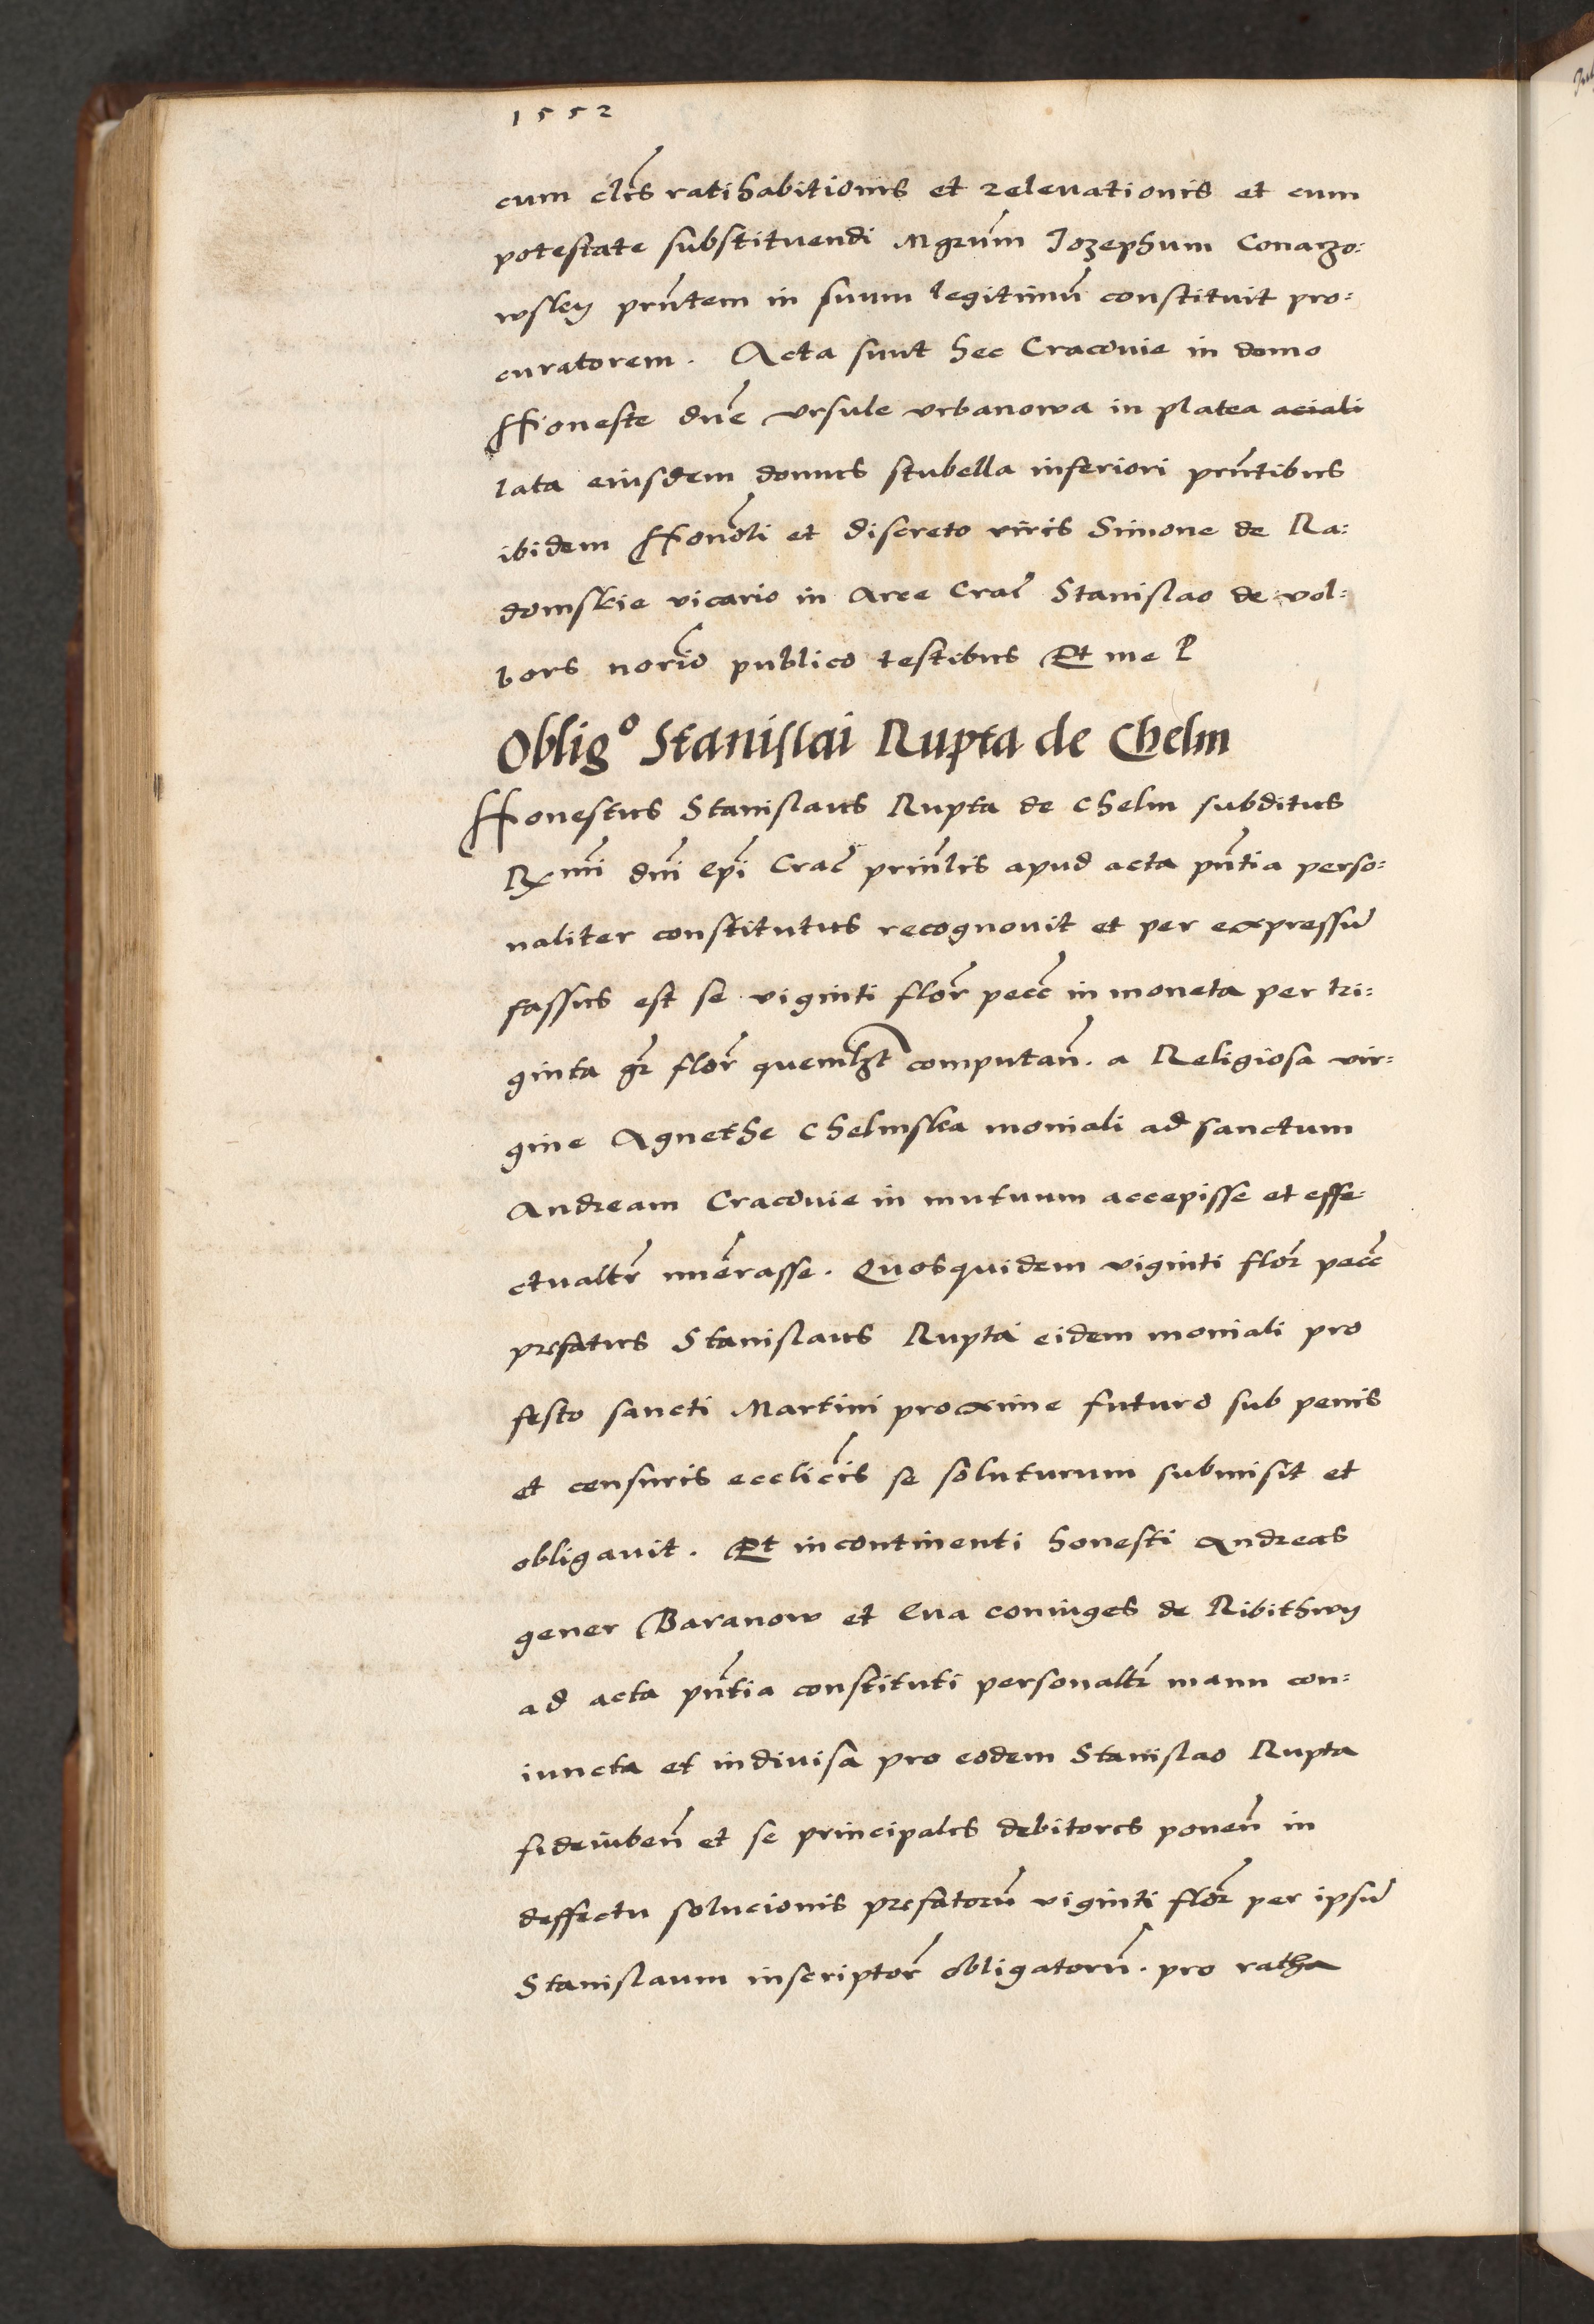 1552
cum clis ratihabitionis et relevationis et cum
potestate substituendi Mgrum Iozephum Conarzo:
wsky prntem in suum legitimu constituit pro:
curatorem. Acta sunt hec Cracovie in domo
Honeste dne Ursule Urbanowa in platea aciali
lata eiusdem domus stubella inferiori prntibus
ibidem Honoli et discreto viris Simone de Ra:
domskie vicario in Arce Crac Stanislao de Vol:
bors norio publico testibus Et me P
Oblig° Stanislai Rupta de Chelm
Honestus Stanislaus Rupta de Chelm subditus
Rxmi dni Epi Crac prinlis apud acta pntia perso:
naliter constitutus recognovit et per expressu
fassus est se viginti flor pecc in moneta per tri:
ginta gr flor quemlzt computan. a Religiosa vir:
gine Agnethe Chelmska moniali ad sanctum
Andream Cracovie in mutuum accepisse et effe:
ctualtr nuerasse. Quosquidem viginti flor pecc
prefatus Stanislaus Rupta eidem moniali pro
festo sancti Martini proxime futuro sub penis
et censuris ecclicis se soluturum submisit et
obligavit. Et incontinenti honesti Andreas
gener Baranow et Eva coniuges de Ribithwy
ad acta pntia constituti personaltr manu con:
iuncta et indivisa pro eodem Stanislao Rupta
fideiuben et se principales debitores ponen in
deffectu solucionis prefatoru viginti flor per ipsu
Stanislaum inscriptor obligatoru. pro ratha